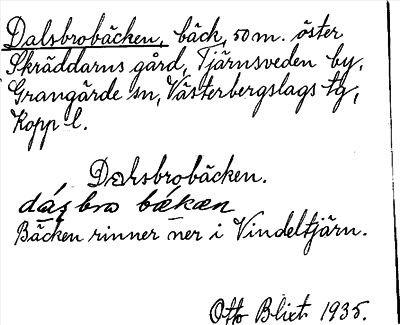 Dalsbrobäcken, bäck, 50 m. öster
Skräddarns gård, Tjärnsveden by,
Grangärde sn, Västerbergslags tg,
Kopp l.
Dalsbrobäcken.
dáʂbrɷ bækæn
Bäcken rinner ner i Vindeltjärn.
Otto Blixt 1935.